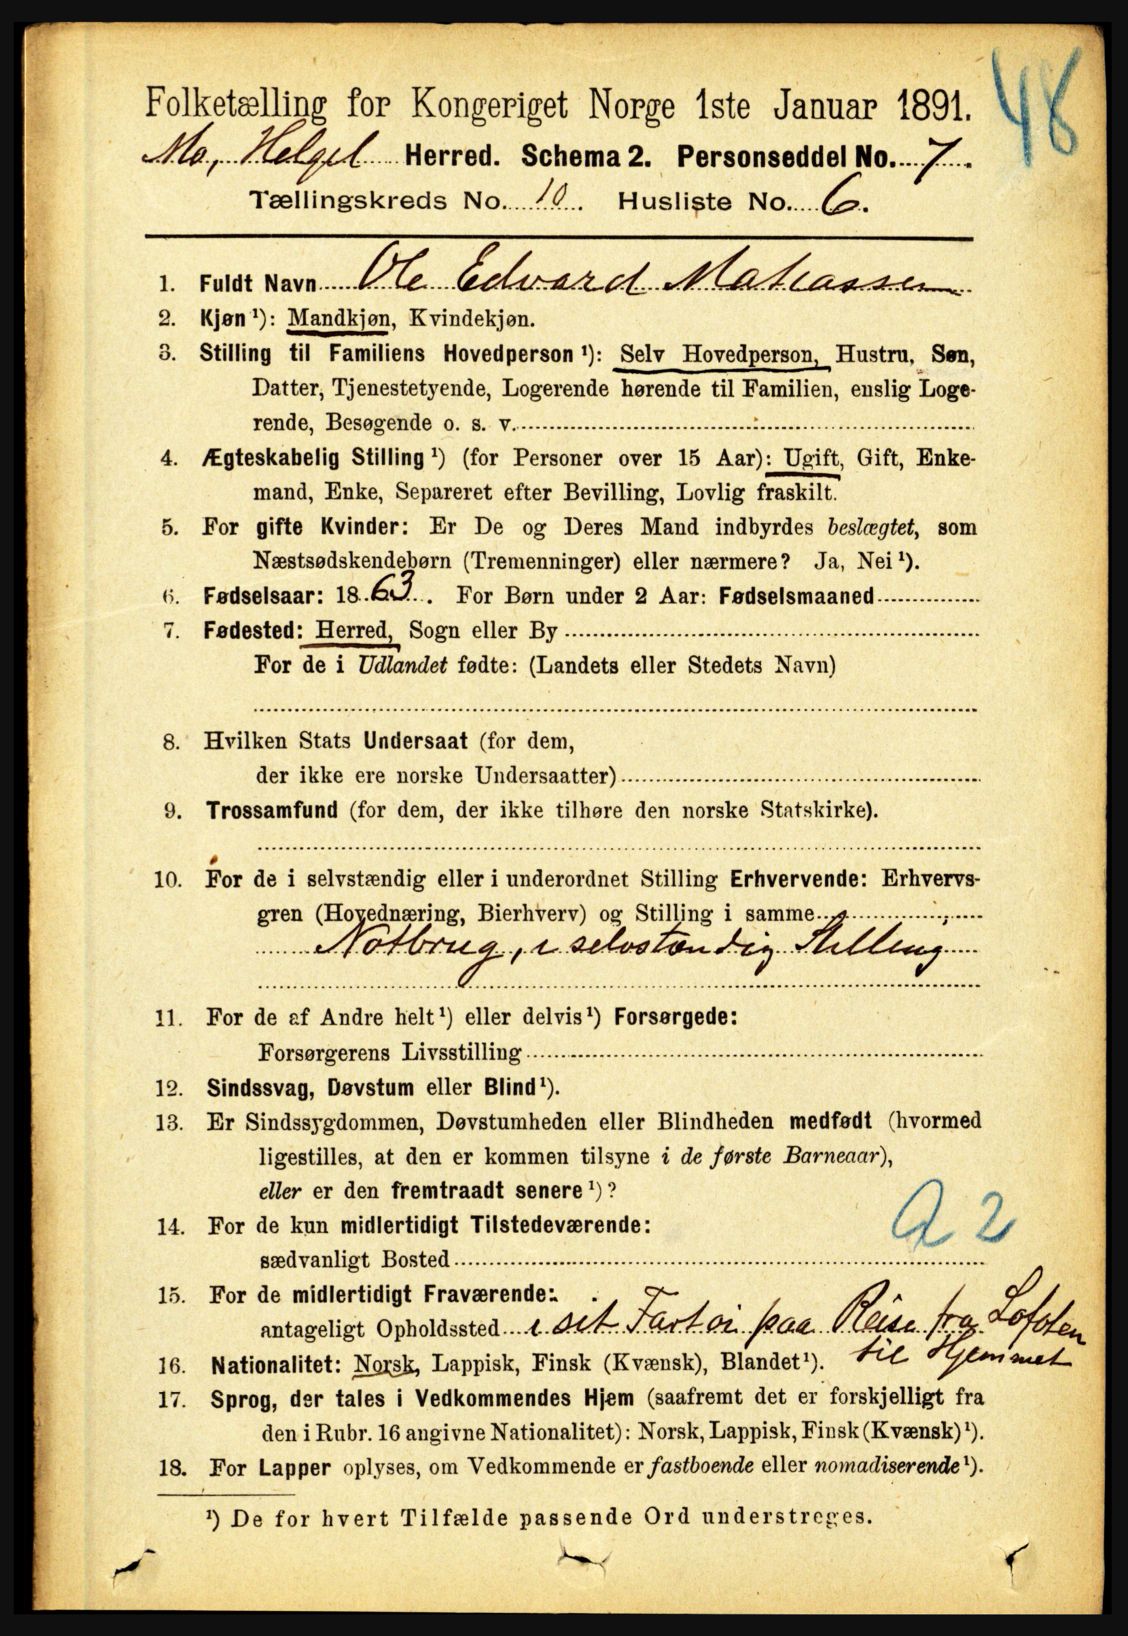 48
Folketælling for Kongeriget Norge 1ste Januar 1891.
Mo, Helgel Herred. Schema 2. Personseddel No. 7.
Tællingskreds No. 10. Husliste No. 6.
1. Fuldt Navn Ole Edvard Matiassen
2. Kjøn ¹): Mandkjøn, Kvindekjøn.
3. Stilling til Familiens Hovedperson ¹): Selv Hovedperson, Hustru, Søn,
Datter, Tjenestetyende, Logerende hørende til Familien, enslig Loge-
rende, Besøgende o. s. v.
4. Ægteskabelig Stilling ¹) (for Personer over 15 Aar): Ugift, Gift, Enke-
mand, Enke, Separeret efter Bevilling, Lovlig fraskilt.
5. For gifte Kvinder: Er De og Deres Mand indbyrdes beslægtet, som
Næstsødskendebørn (Tremenninger) eller nærmere? Ja, Nei ¹).
6. Fødselsaar: 1863. For Børn under 2 Aar: Fødselsmaaned
7. Fødested: Herred, Sogn eller By
For de i Udlandet fødte: (Landets eller Stedets Navn)
8. Hvilken Stats Undersaat (for dem,
der ikke ere norske Undersaatter)
9. Trossamfund (for dem, der ikke tilhøre den norske Statskirke).
10. For de i selvstændig eller i underordnet Stilling Erhvervende: Erhvervs-
gren (Hovednæring, Bierhverv) og Stilling i samme
Notbrug, i selvstændig Stilling
11. For de af Andre helt ¹) eller delvis ¹) Forsørgede:
Forsørgerens Livsstilling
12. Sindssvag, Døvstum eller Blind ¹).
13. Er Sindssygdommen, Døvstumheden eller Blindheden medfødt (hvormed
ligestilles, at den er kommen tilsyne i de første Barneaar),
eller er den fremtraadt senere ¹)?
a 2
14. For de kun midlertidigt Tilstedeværende:
sædvanligt Bosted
15. For de midlertidigt Fraværende:
antageligt Opholdssted i sit Fartøi paa Reise fra Lofoten
til Hjemmet
16. Nationalitet: Norsk, Lappisk, Finsk (Kvænsk), Blandet ¹).
17. Sprog, der tales i Vedkommendes Hjem (saafremt det er forskjelligt fra
den i Rubr. 16 angivne Nationalitet): Norsk, Lappisk, Finsk (Kvænsk) ¹).
18. For Lapper oplyses, om Vedkommende er fastboende eller nomadiserende ¹).
¹) De for hvert Tilfælde passende Ord understreges.